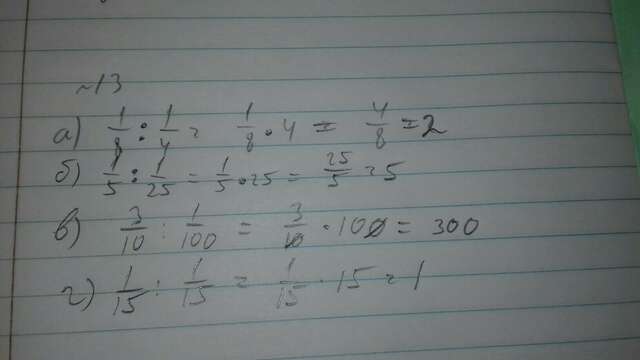 ~13
а) 1/8 : 1/4 = 1/8 · 4 = 4/8 = 2
б) 1/5 : 1/25 = 1/5 · 25 = 25/5 = 5
в) 3/10 : 1/100 = 3/10 · 100 = 300
г) 1/15 : 1/15 = 1/15 · 15 = 1